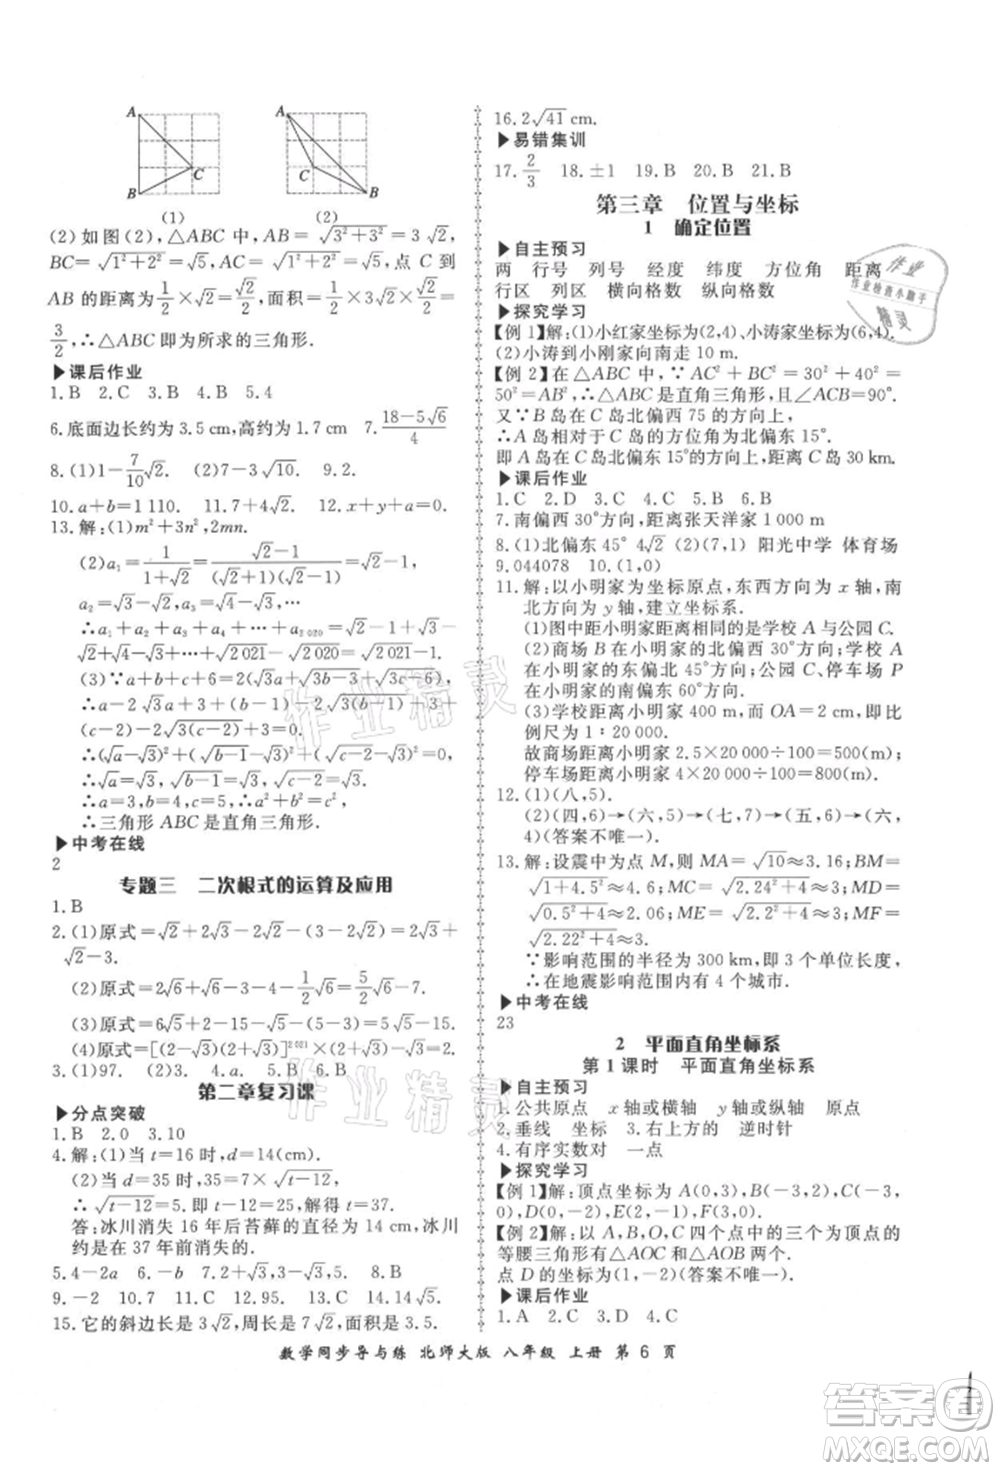 A
B
C
(1)
A
C
B
(2)
(2)如图(2),△ABC 中,AB=√(3²+3²)=3√2,
BC=√(1²+2²)=√5,AC=√(1²+2²)=√5,点 C 到
AB 的距离为√2/2,面积=1/2×3√2×√2/2=
3/2,∴△ABC 即为所求的三角形.
▶课后作业
1.B 2.C 3.B 4.B 5.4
6.底面边长约为 3.5 cm,高约为 1.7 cm 7.(18-5√6)/4
8.(1)1-7/10√2 (2)-9√6-9√2 9.2.
10.a+b=1 110. 11.a+b+c=6. 12.0.
13.解:(1)m²+3n²,2mn.
(2)a₁=1/(1+√2)=(√2-1)/((√2+1)(√2-1))=√2-1,
a₂=√3-√2,a₃=√4-√3,…
∴a₁+a₂+a₃+…+a₂₀₂₀=√2-1+√3-√2+√4
-√3+…+√2021-√2020=√2021-1.
(3)∵a+b+c+6=2√3a+2√3(b-1)+2√3(c-2),
∴a-2√3a+3+(b-1)-2√3(b-1)+3+
(c-2)-2√3(c-2)+3=0.
∴(√a-√3)²+(√(b-1)-√3)²+(√(c-2)-√3)²=0.
∴√a=√3,√(b-1)=√3,√(c-2)=√3.
∴a=3,b=4,c=5.∴a²+b²=c².
∴三角形 ABC 是直角三角形.
▶中考在线
2
专题三 二次根式的运算及应用
1.B
2.(1)原式=√2+2√3-2√2-(3-√3)=3√3-
√2-3.
(2)原式=2+√6-9+1/2√6=3/2√6-7.
(3)原式=6√5-2√5-√5=3√5.
(4)原式=[(√3-2)(√3+2)]²⁰²¹-√3+1=-√3.
3.(1)97. (2)2. 4.B 5.B 6.B
第二章复习课
▶分点突破
1.B 2.0 3.10
4.解:(1)当 t=16 时,d=7×√(16-12)=14(cm).
(2)当 d=35 时,35=7×√(t-12),
∴√(t-12)=5,即 t-12=25,解得 t=37.
答:冰川消失 16 年后苔藓的直径为14 cm,冰川
约是在 37 年前消失的.
5.4-2a 6.-2 7.2+√3-√2 8.B
9.-2 10.7 11.7 12.95. 13.6 14.2
15.它的斜边长是 3√2,它的面积是 3.5.
16.2√41 cm.
▶易错集训
17.2/3 18.±1 19.B 20.B 21.B
第三章 位置与坐标
1 确定位置
▶自主预习
两 行号 列号 经度 纬度 方位角 距离
行区 列区 横向格数 纵向格数
▶探究学习
【例 1】解:(1)小红家坐标为(2,4),小涛家坐标为(6,4).
(2)小涛到小刚家向南走 10 m.
【例 2】解:在△ABC 中,∵AC²+BC²=30²+40²=
50²=AB²,∴△ABC 是直角三角形,且∠ACB=90°.
又∵B 岛在 C 岛北偏西 75 的方向上,
∴A 岛相对于 C 岛的方位角为北偏东 15°.
即 A 岛在 C 岛北偏东 15°方向上,且距离 C 岛 30 km.
▶课后作业
1.C 2.D 3.C 4.D 5.B 6.B
7.南偏西 30°方向,距离张天洋家 1 000 m
8.(1)北偏东 45° 4√2 (2)(7,1) 阳光中学 体育场
9.044078 10.(1,0)
11.解:以小明家为坐标原点,东西方向为 x 轴,南
北方向为 y 轴,建立坐标系.
(1)图中距小明家距离相同的是学校 A 与公园 C.
(2)商场 B 在小明家的北偏西 30°方向;学校 A
在小明家的东偏北 45°方向;公园 C,停车场 P
在小明家的南偏东 60°方向.
(3)学校距离小明家 400 m,而 OA=2 cm,故比
例尺为 1∶20 000.
故商场距离小明家 2.5×20 000÷100=500(m);
停车场距离小明家 4×20 000÷100=800(m).
12.(1)(八,5).
(2)(四,6)→(六,5)→(四,4)→(五,6)→(六,
4)(答案不唯一).
13.解:设震中为点 M,则 MA=√10≈3.2,BM=
√(0.5²+9)≈3.04,MC=√(2²+4)≈2.83,MD=
√(0.5²+4)≈2.06,ME=√(2²+4)≈2.83,MF=
√(2.22²+4)≈2.99.
∵影响范围的半径为 300 km,即 3 个单位长度,
∴在地震影响范围内的有 4 个城市.
▶中考在线
23
2 平面直角坐标系
第 1 课时 平面直角坐标系
▶自主预习
1.公共原点 x轴或横轴 y轴或纵轴 原点
2.垂线 坐标 3.右上方的 逆时针
4.有序实数对 一点
▶探究学习
【例 1】解:顶点坐标为 A(0,3),B(-2,0),C(-3,
0),D(0,-2),E(1,-2),F(3,0).
【例 2】解:以 A,B,C,O 四个点中的三个为顶点的
等腰三角形有△AOC 和△ABC 两个.
点 D 的坐标为(1,2)(答案不唯一).
▶课后作业
1.A 2.C 3.D 4.D
数学同步导与练 北师大版 八年级 上册 第 6 页
作业
作业检查小助手
精灵
作业精灵
作业精灵
答案圈
MXQE.COM